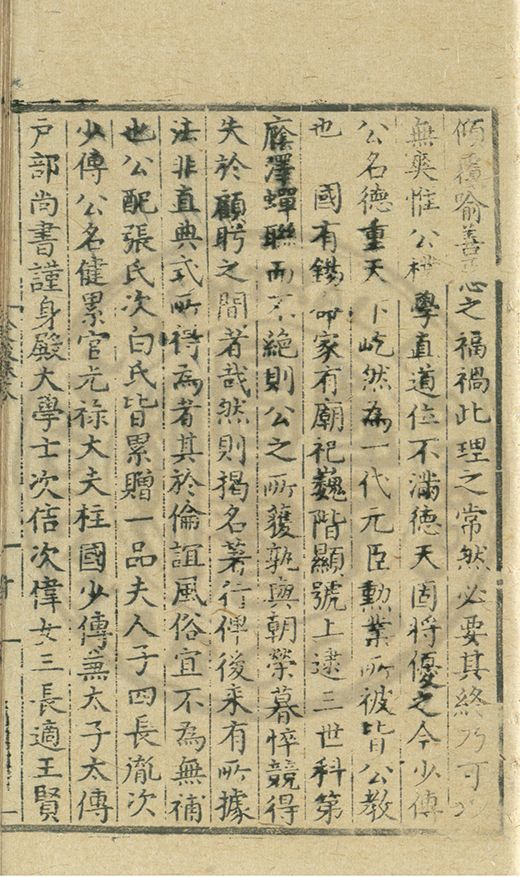 傾覆喻善惡之福禍此理之常然必要其終乃可
無爽惟公積學直道位不滿德天固將優之今少傅
公名德重天下屹然為一代元臣勳業所被皆公教
也 國有錫命家有廟祀巍階顯號上逮三世科第
廕澤蟬聯而不絕則公之所獲孰與朝榮暮悴競得
失於顧盻之間者哉然則揭名著行俾後來有所據
法非直典式所得為者其於倫誼風俗宜不為無補
也公配張氏次白氏皆累贈一品夫人子四長胤次
少傅公名健累官光祿大夫柱國少傅兼太子太傅
戶部尚書謹身殿大學士次佶次偉女三長適王賢